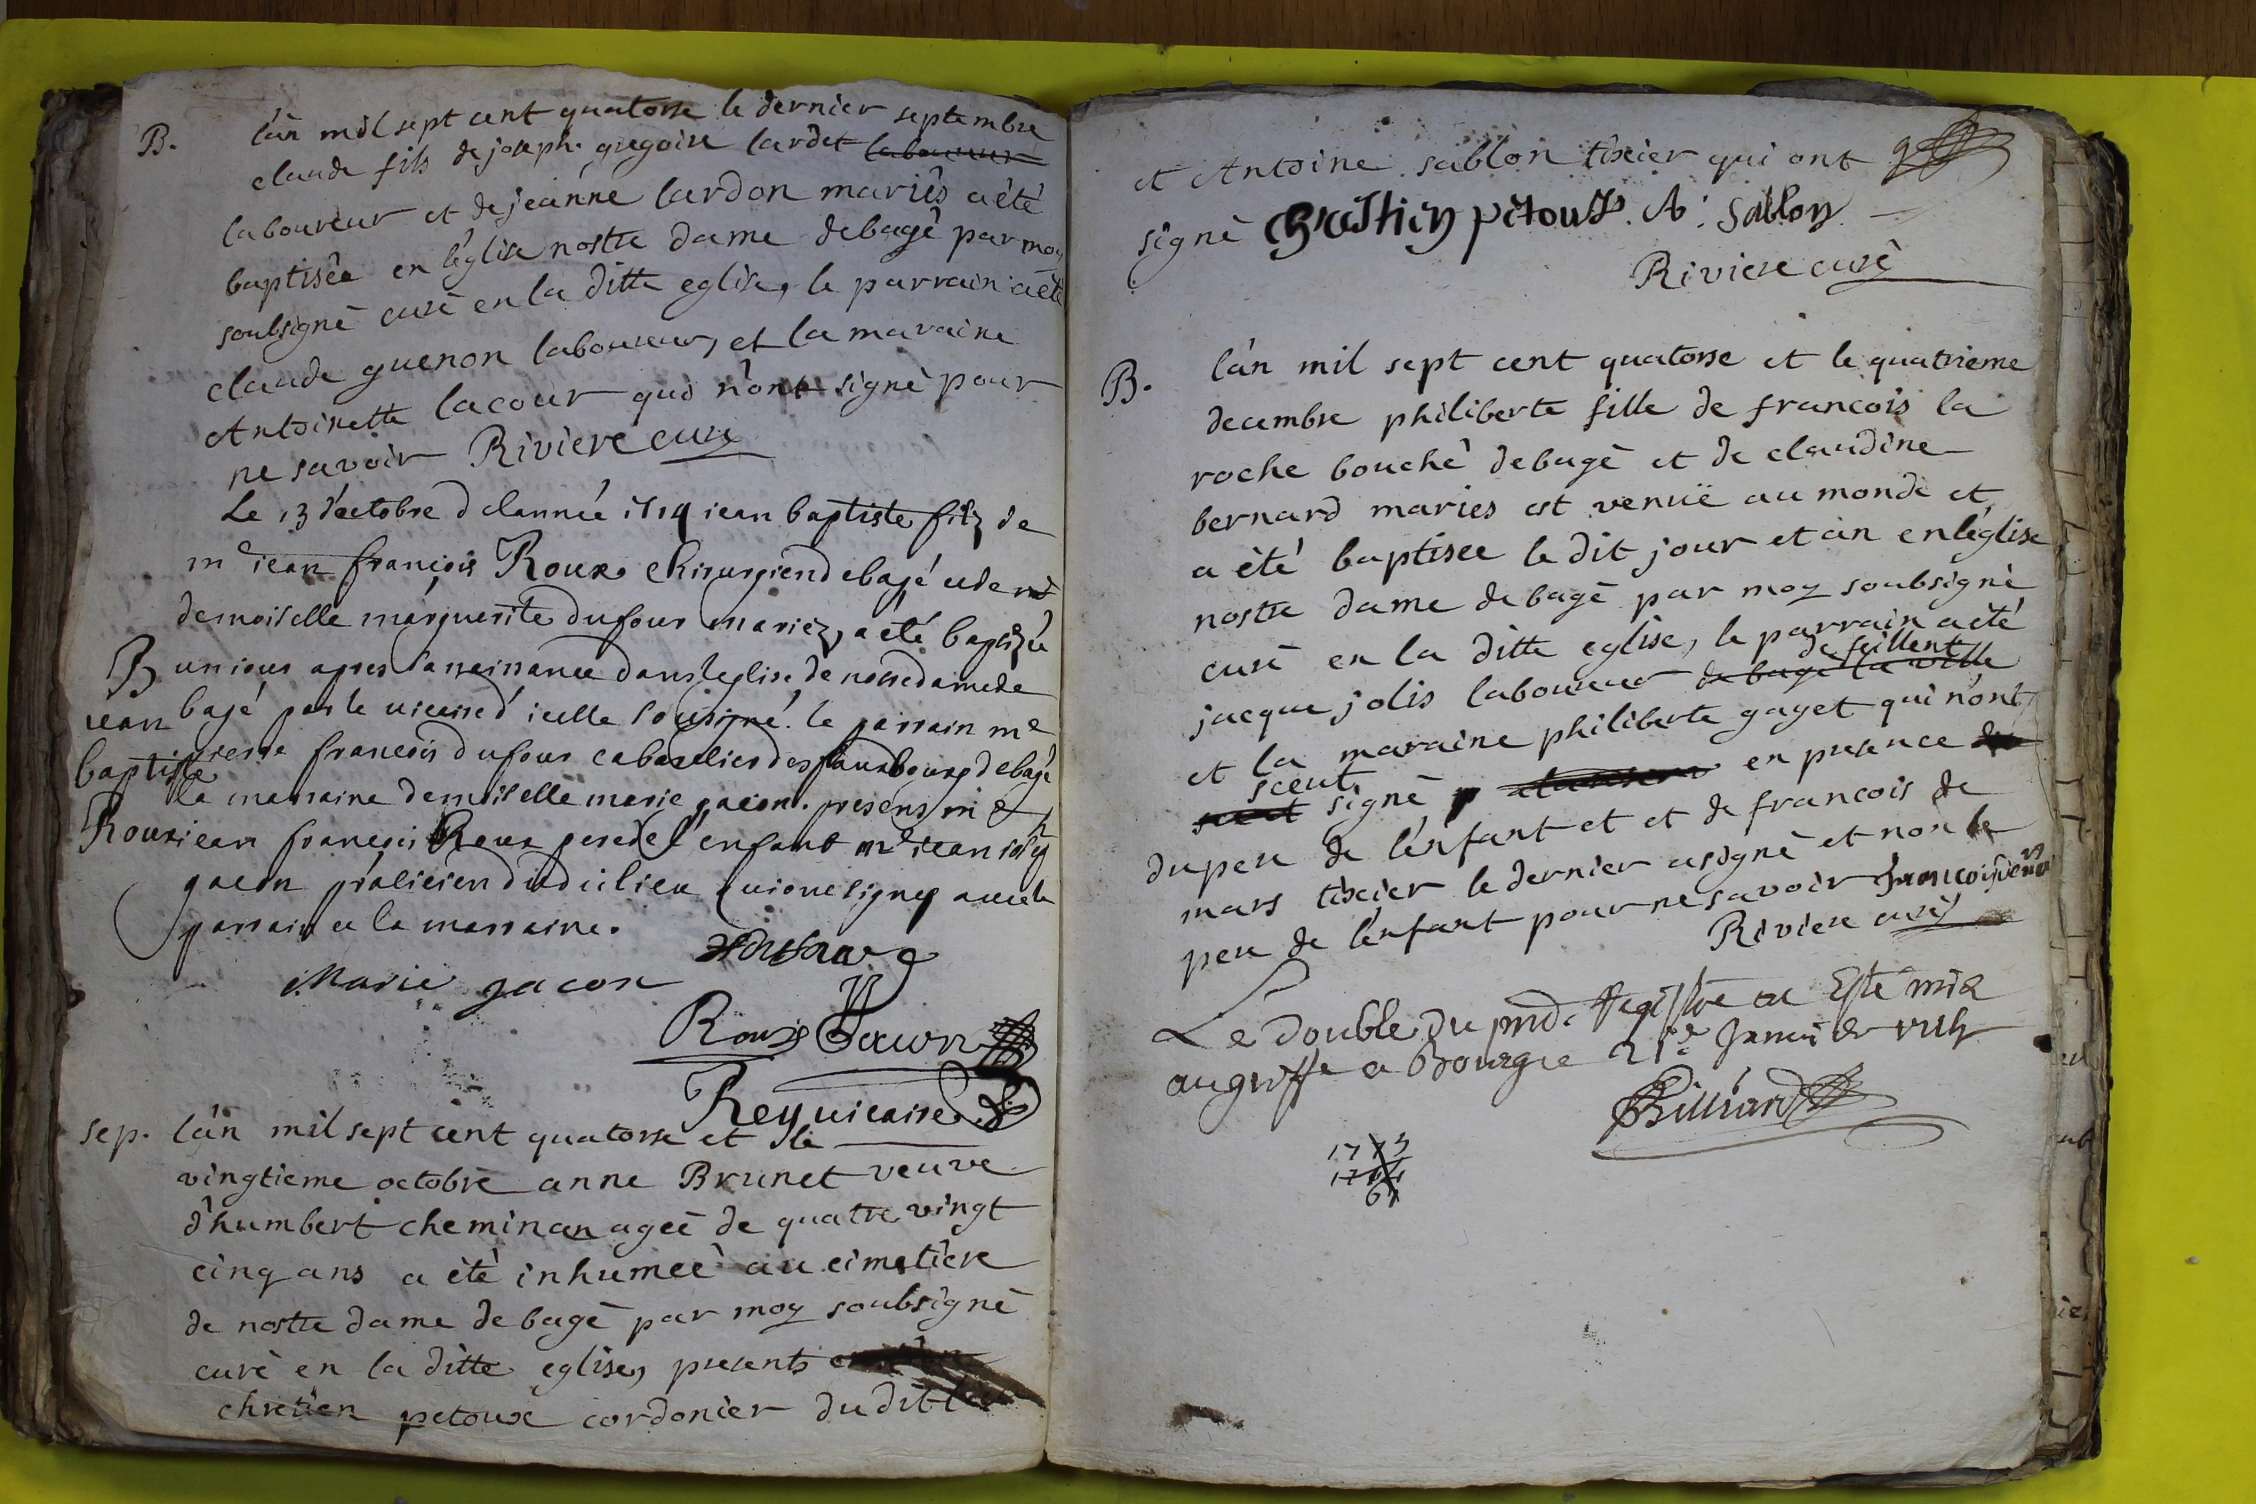 B. l'an mil sept cent quatorse le dernier septembre
claude fils de joseph gregoire lardet laboureur
laboureur et de jeanne lardon mariès a èté
baptisèe en l'èglise nostre dame de bagè par moy
soubsignè curè en la ditte eglise, le parrain a èté
claude guenon laboureur, et la maraine
Antoinette lacour qui n'ont signè pour
ne savoir Riviere curè
Le 13 d'octobre d lannée 1714 iean baptiste filz de
mr iean françois Roux chirurgien d ebagé et de
demoiselle marguerite dufour mariez, a été baptizé
B un iour apres sa naissance dans leglise de nostre dame de
bagé par le vicaire d'icelle sousigné. le parrain me
iean
baptiste
Roux
pierre francois dufour cabaretier des fauxbourg de bagé
la marraine demoiselle marie gacon. presens mr
iean françois Roux pere de l'enfant me iean
gacon praticien dudit lieu qui ont signez avec le
parrain et la marraine.
Dufour
Marie gacon
Roux Gacon
Rey vicaire
sep. l'an mil sept cent quatorse et le
vingtieme octobre anne Brunet veuve
d'humbert cheminan ageè de quatre vingt
cinq ans a èté inhumeè au cimetière
de nostre dame de bagè par moy soubsignè
curè en la ditte eglise, presents
chretien petoux cordonier du dit lieu
et Antoine sablon tixier qui ont
signè Chrestien petoux. A. Sablon
Riviere curè
B. l'an mil sept cent quatorse et le quatrieme
decembre philiberte fille de francois la
roche bouchè de bagè et de claudine
bernard maries est venuë au monde et
a èté baptisee le dit jour et an en l'èglise
nostre dame de bagè par moy soubsignè
curè en la ditte eglise, le parrain a èté
de feillent
jacque jolis laboureur de bagè la ville
et la maraine philiberte gayet qui n'ont
sceut
signè en presence
du pere de l'enfant et et de francois de
mars tixier le dernier a signè et non le
pere de l'enfant pour ne savoir francois
Riviere curè
Le double du pnt. Registre a Esté mis
au greffe a Bourg le 21e Janvier
Billiard
1773
1714